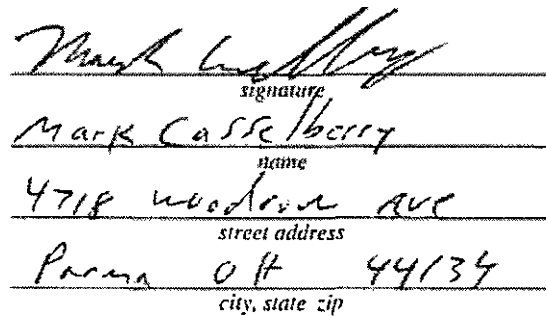 Mark Casselberry
signature
Mark Casselberry
name
4718 Woodrow Ave
street address
Parma OH 44134
city, state zip